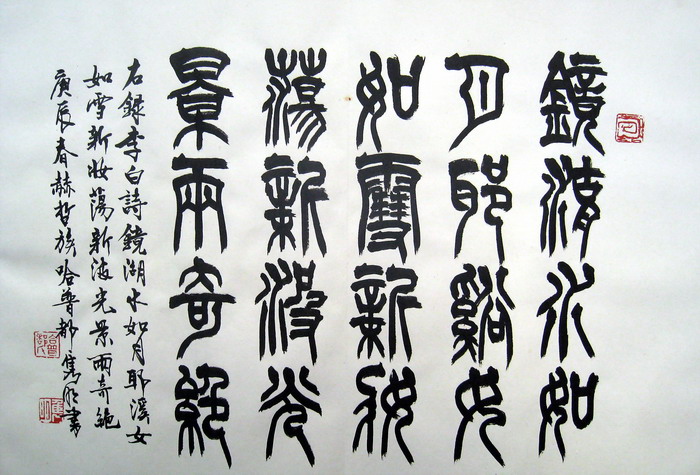 鏡湖水如
月耶谿女
如雪新妝
蕩新波光
景兩奇絕
右録李白詩鏡湖水如月耶溪女
如雪新妝蕩新波光景兩奇絶
庚辰春赫哲族哈普都雋明書